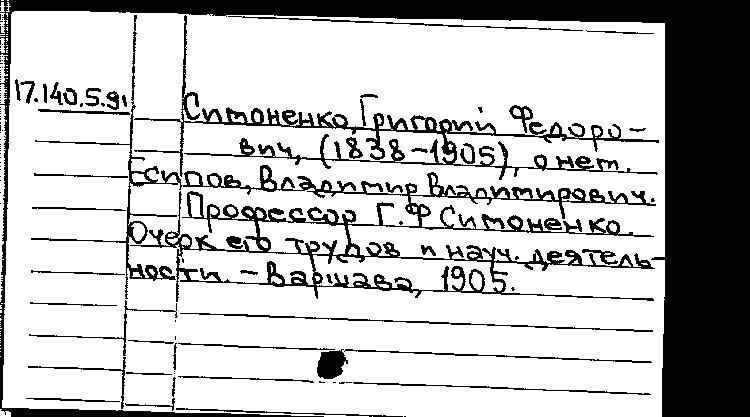 17.140.5.91
Симоненко, Григорий Федоро-
вич, (1838-1905), о нем.
Есипов, Владимир Владимирович.
Профессор Г.Ф Симоненко.
Очерк его трудов и науч. деятель-
ности. - Варшава, 1905.